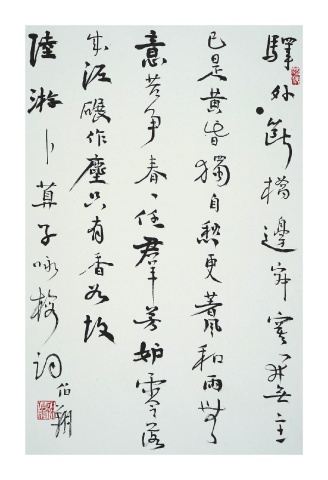 驛外斷橋邊寂寞開無主
已是黃昏獨自愁更著風和雨無
意苦爭春一任羣芳妒零落
成泥碾作塵只有香如故
陸游卜算子詠梅詞
伯翔